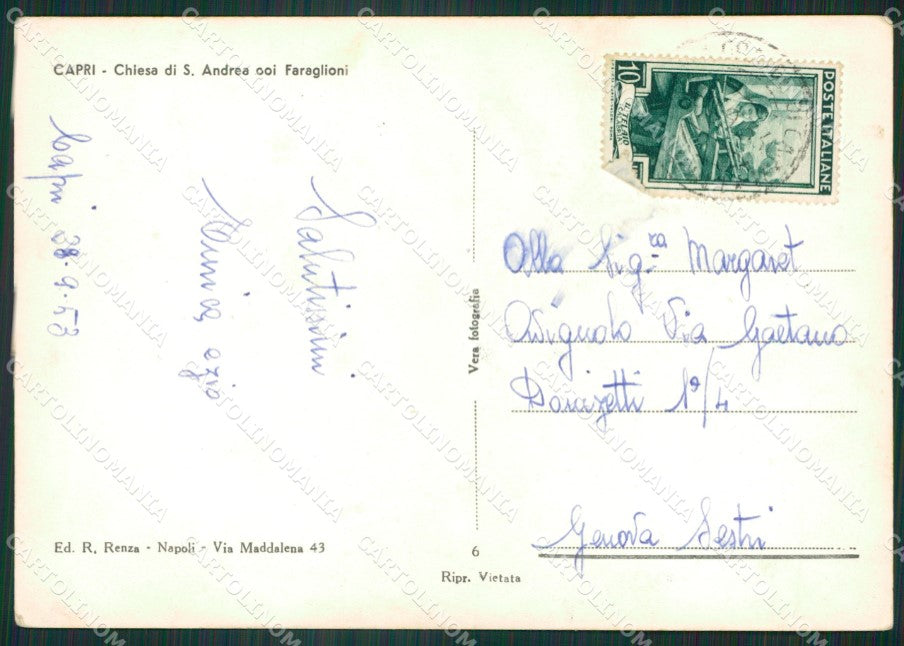 CAPRI - Chiesa di S. Andrea coi Faraglioni
Capri 28.9.53
Salutissimi
Ezio
POSTE ITALIANE
10
Alla Sig.ra Margaret
Avignolo Via Gaetano
Donizetti 19/4
Genova Sestri
Vera fotografia
Ed. R. Renza - Napoli - Via Maddalena 43
6
Ripr. Vietata
CARTOLINOMANIA